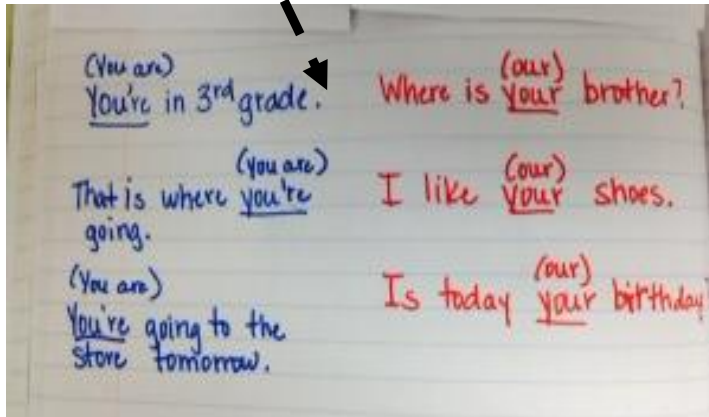 (You are)
You're in 3rd grade.
That is where you're
(you are)
going.
(You are)
You're going to the
store tomorrow.
(our)
Where is your brother?
(our)
I like your shoes.
(our)
Is today your birthday?